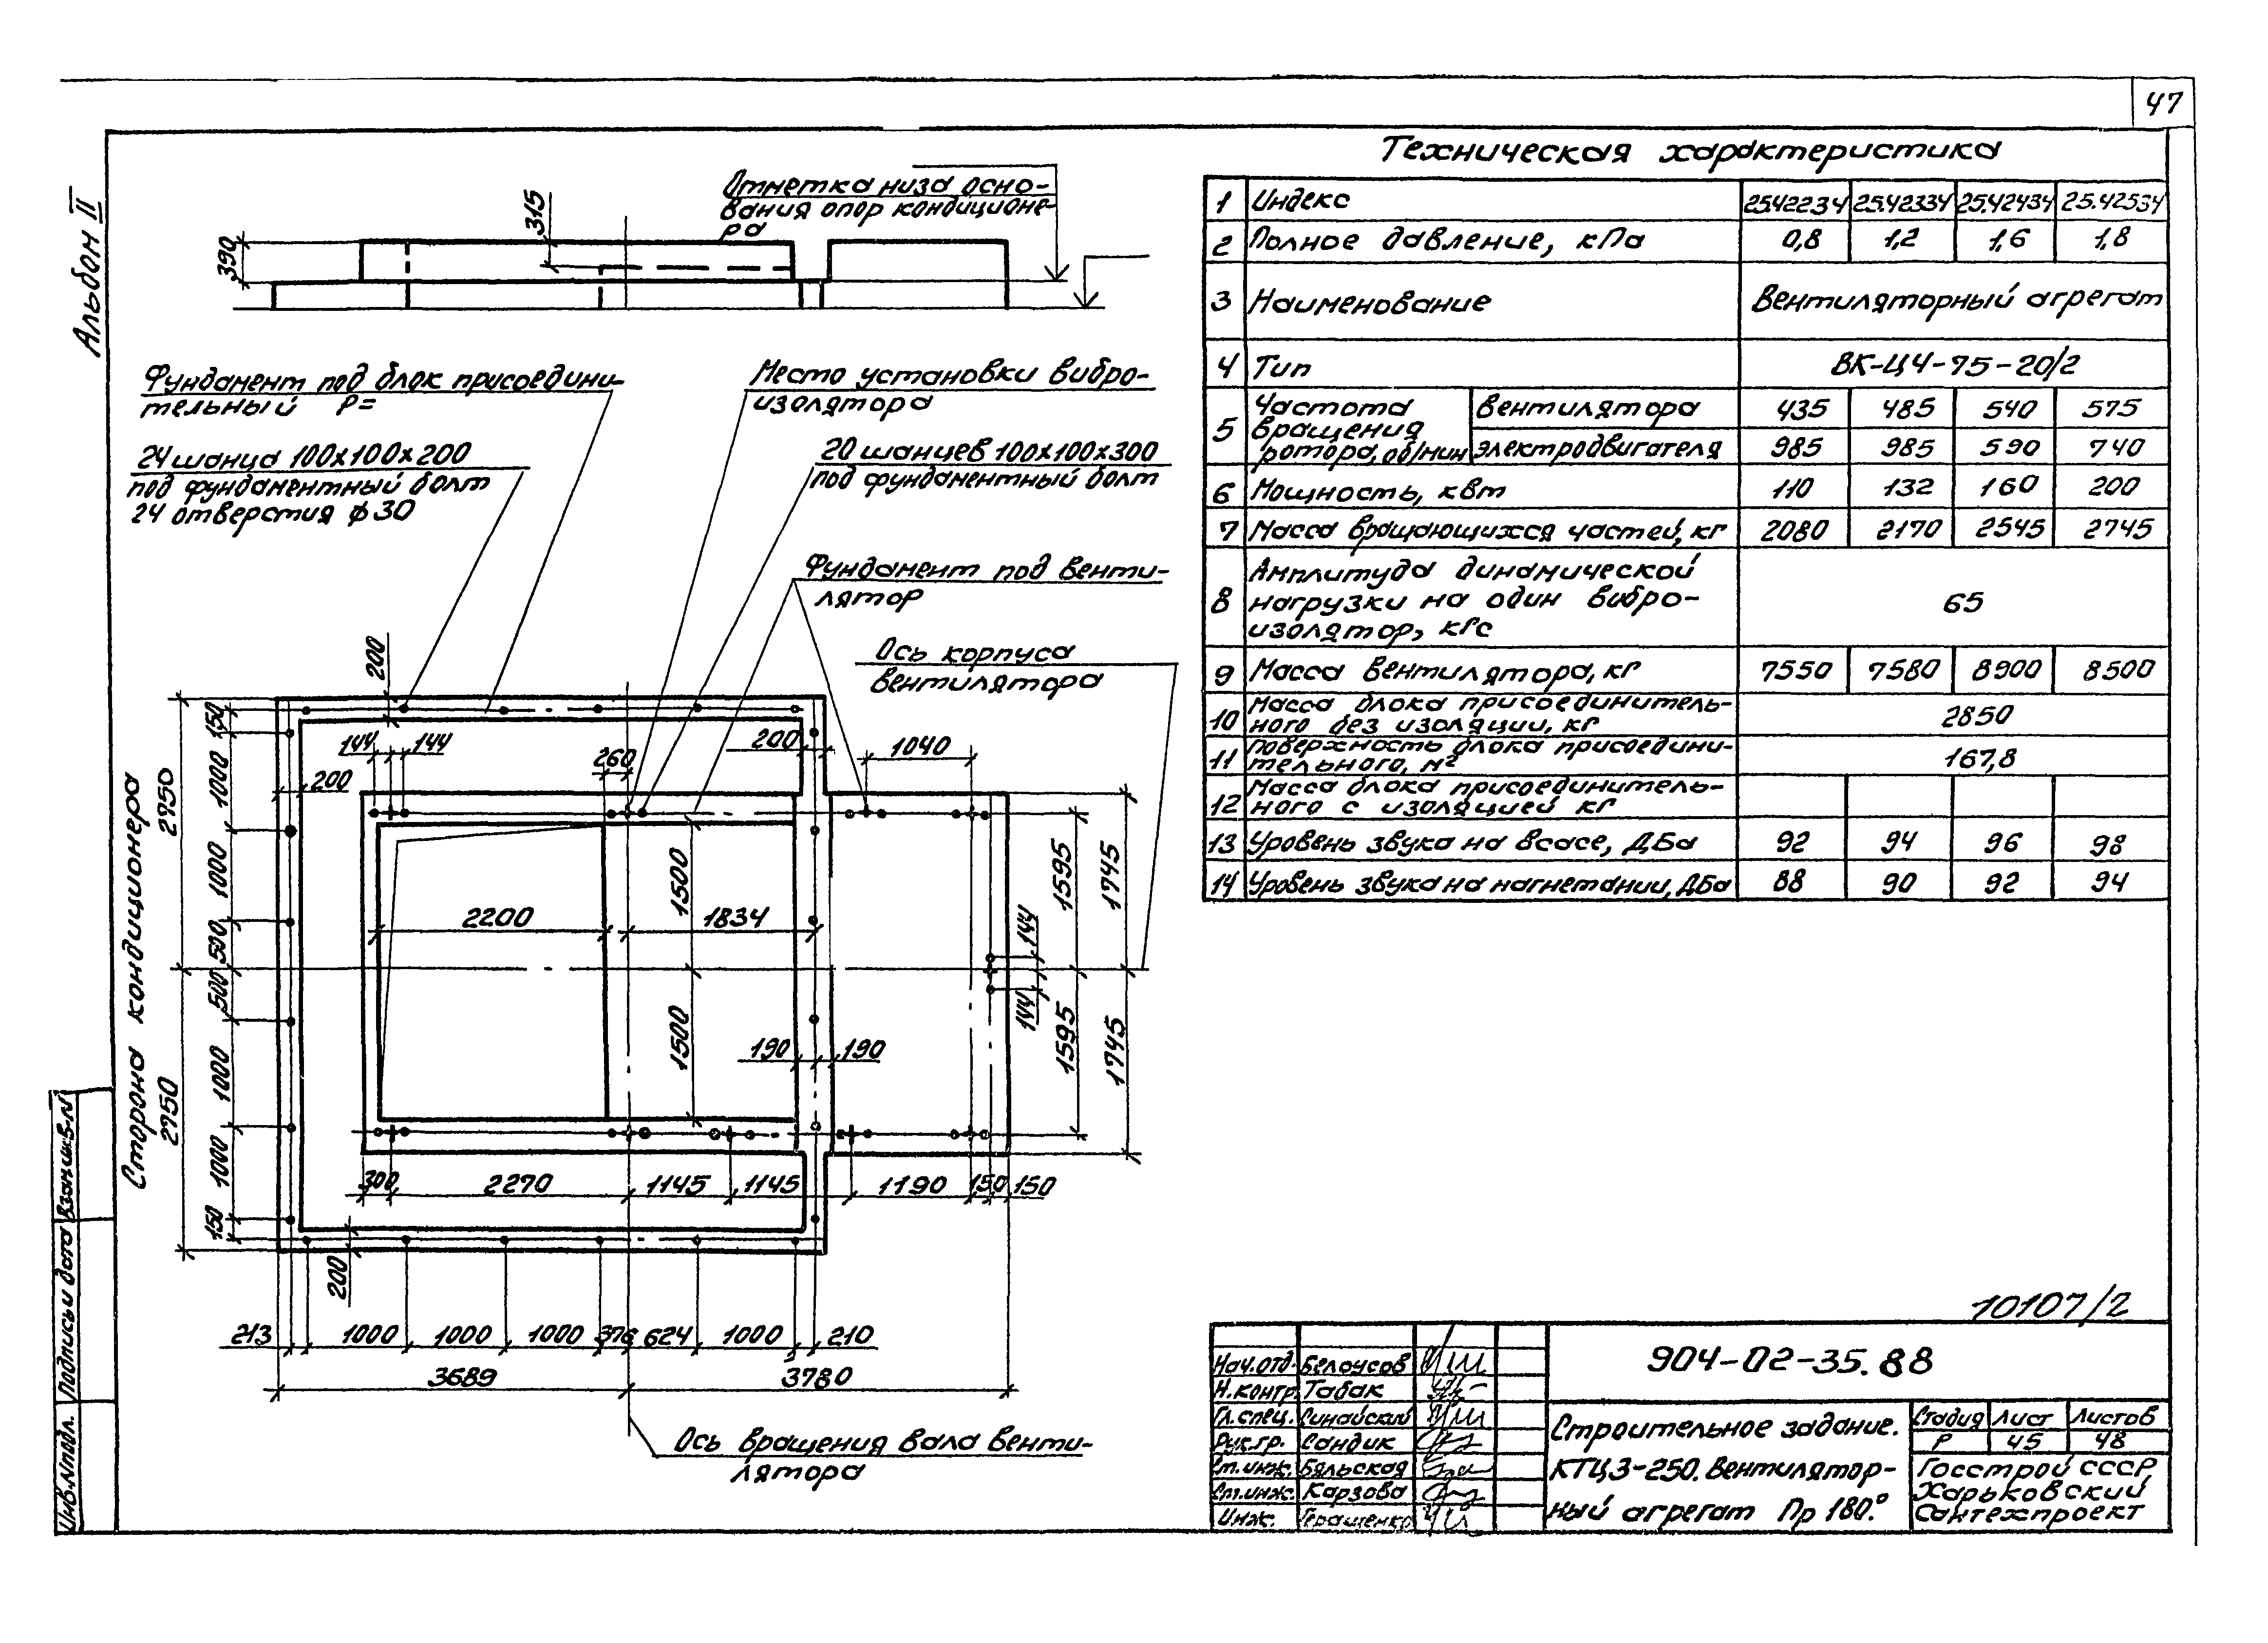 47
Альбон II
Отметка низа осно-
вания опор кондиционе-
ра
315
390
Фундамент под блок присоедини-
тельный P=
24 шанца 100х100х200
под фундаментный болт
24 отверстия ϕ30
Место установки вибро-
изолятора
20 шанцев 100х100х300
под фундаментный болт
Фундамент под венти-
лятор
Ось корпуса
вентилятора
Сторона кондиционера
2750
2750
150
1000
1000
500
500
1000
1000
150
200
144
144
200
260
200
1040
1500
1500
2200
1834
190
190
144
144
1595
1595
1745
1745
300
2270
1145
1145
1190
150
150
200
213
1000
1000
1000
376
624
1000
210
3689
3780
Ось вращения вала венти-
лятора
Техническая характеристика
1 Индекс 2542234 25.42334 25.42434 25.42534
2 Полное давление, кПа 0,8 1,2 1,6 1,8
3 Наименование Вентиляторный агрегат
4 Тип ВК-Ц4-75-20/2
5 Частота вентилятора 435 485 540 575
вращения
ротора, об/мин электродвигателя 985 985 590 740
6 Мощность, квт 110 132 160 200
7 Масса вращающихся частей, кг 2080 2170 2545 2745
Амплитуда динамической
8 нагрузки на один вибро- 65
изолятор, кгс
9 Масса вентилятора, кг 7550 7580 8900 8500
Масса блока присоединитель-
10 ного без изоляции, кг 2850
Поверхность блока присоедини-
11 тельного, м² 167,8
Масса блока присоединитель-
12 ного с изоляцией кг
13 Уровень звука на всасе, ДБа 92 94 96 98
14 Уровень звука на нагнетании, ДБа 88 90 92 94
10107/2
904-02-35.88
Нач.отд. Белоусов
Н.контр. Табак
Гл.спец. Синайский
Рук.гр. Сандик
Ст.инж. Бяльская
Ст.инж. Карзова
Инж. Геращенко
Строительное задание.
КТЦ3-250. Вентилятор-
ный агрегат Пр 180.°
Стадия Лист Листов
Р 45 48
Госстрой СССР
Харьковский
Сантехпроект
Инв.№подл. Подпись и дата Взам.инв.№